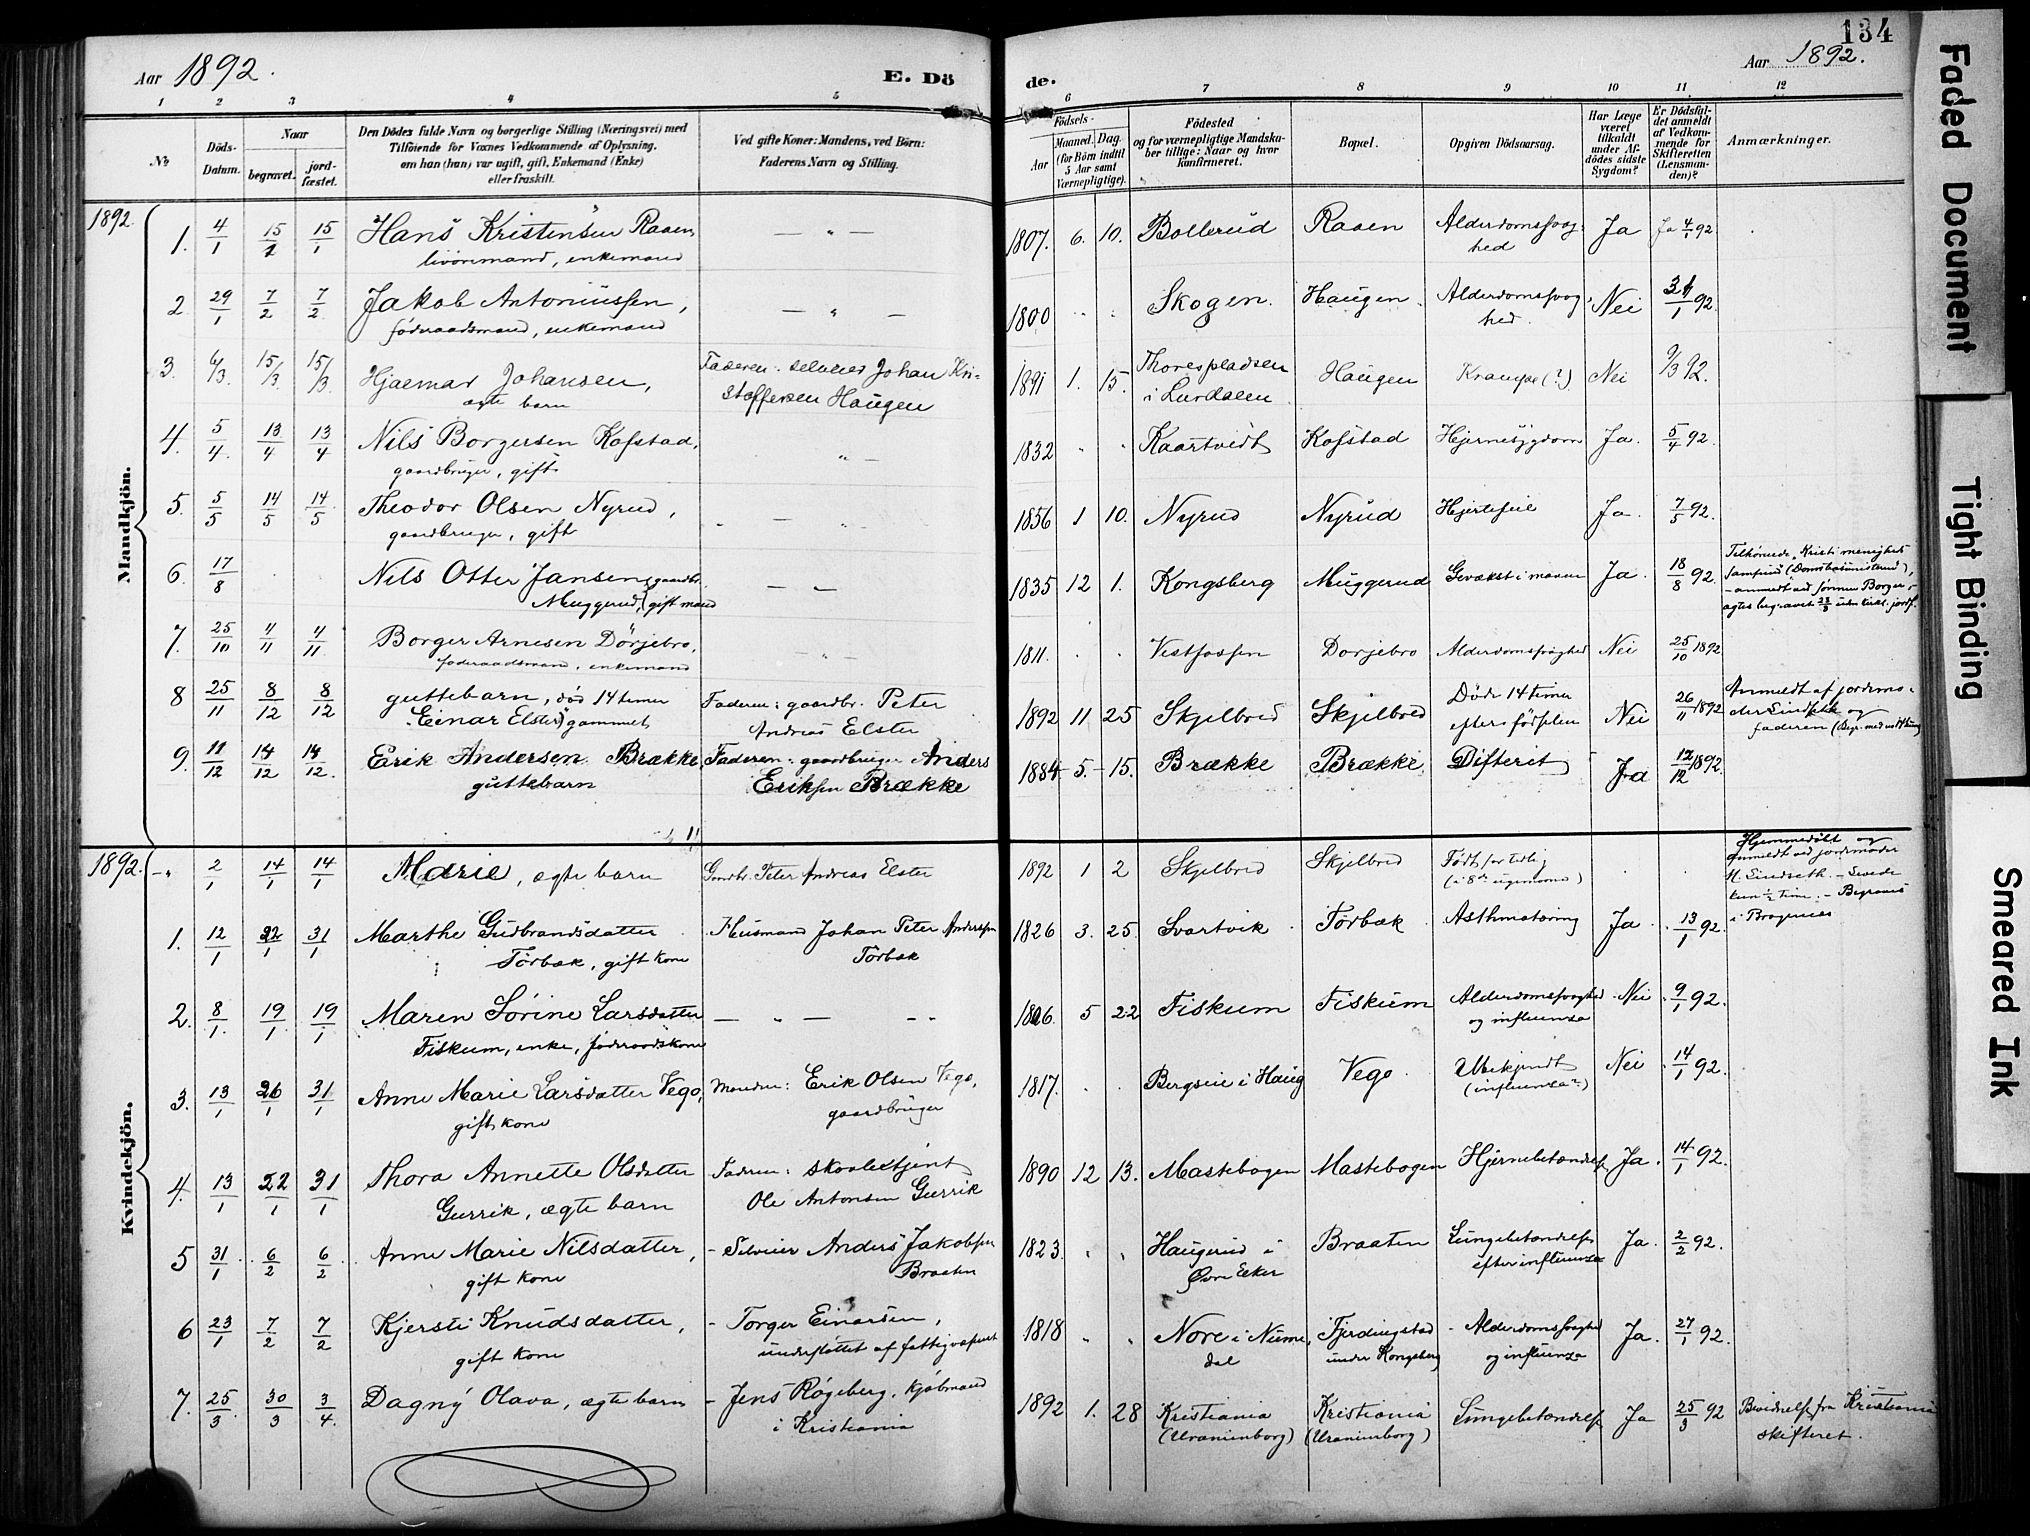 134
Aar 1892.
E. Dö
de.
Aar 1892.
1 2 3 4 5 6 7 8 9 10 11 12
No
Döds-Datum.
Naar
begravet.
jord-fæstet.
Den Dödes fulde Navn og borgerlige Stilling (Næringsvei) med
Tilföiende for Voxnes Vedkommende af Oplysning,
om han (hun) var ugift, gift, Enkemand (Enke)
eller fraskilt.
Ved gifte Koner: Mandens, ved Börn:
Faderens Navn og Stilling.
Födsels-
Aar
Maaned. Dag.
(for Börn indtil
5 Aar samt
Værnepligtige).
Födested
og for værnepligtige Mandska-
ber tillige: Naar og hvor
konfirmeret.
Bopæl.
Opgiven Dödsaarsag.
Har Læge
været
tilkaldt
under Af-
dödes sidste
Sygdom?
Er Dödsfal-
det anmeldt
af Vedkom-
mende for
Skifteretten
(Lensman-
den)?
Anmærkninger.
Mandkjön.
1892
1. 4/1 15/1 15/1 Hans Kristensen Raaen, — " — 1807. 6. 10. Bollerud Raaen Alderdomssvag- Ja Ja 4/1 92
livöremand, enkemand hed
2 29/1 7/2 7/2 Jakob Antoniussen, — " — 1800 " " Skogen. Haugen. Alderdomssvag Nei 31/1 92.
föderaadsmand, enkemand hed.
3. 6/3. 15/3 15/3 Hjalmar Johansen, Faderen: selveier Johan Kri- 1891 1. 15. Thorespladsen Haugen Krampe (?) Nei 9/3 92.
ægte barn stoffersen Haugen i Lurdalen
4. 5/4. 13/4 13/4 Nils Borgersen Kofstad, " — 1832 " " Kaartvedt Kofstad Hjernesygdom Ja. 5/4 92.
gaardbruger, gift
5. 5/5 14/5 14/5 Theodor Olsen Nyrud, — 1856 1 10. Nyrud Nyrud Hjertefeil Ja. 7/5 92.
gaardbruger, gift
6. 17/8 Nils Otter Jansen (gaardbr. — " 1835 12 1. Kongsberg Muggerud Gevækst i maven Ja. 18/8 92.
Muggerud, (gift mand
Tilhørende "Kristi menigheds
samfund
- anmeldt ved sønnen Borger -
7. 25/10 4/11 4/11 Borger Arnesen Dörjebro, " 1811. " " Vestfossen Dorjebro Alderdomssvaghed Nei 25/10 1892
föderaadsmand, enkemand
8 25/11 8/12 8/12 guttebarn, död 14 timer Faderen: gaardbr. Peter 1892 11. 25 Skjelbred Skjelbred Döde 14 timer Nei 26/11 1892
(Einar Elster) gammel Andreas Elster efter födselen
Anmeldt af jordemo-
der Lindseth og
faderen
9. 11/12 14/12 14/12. Erik Andersen Brække Faderen: gaardbruger Anders 1884 - 5. - 15. Brække Brække Difterit Ja 12/12 1892.
guttebarn Eriksen Brække
Kvindekjön.
1892. - " 2/1 14/1 14/1 Marie, ægte barn Gaardbr. Peter Andreas Elster 1892 1 2 Skjelbred Skjelbred Födt for tidlig
Hjemmedöbt og
anmeldt ved jordemoder
M. Lindseth. - Levede
kun ½ time. - Begraves
i Bragernes
1. 12/1 22/1 31/1 Marthe Gudbrandsdatter - Husmand Johan Peter Andersen 1826 3. 25. Svartvik Torbæk Asthmatæring Ja. 13/1 92.
Törbæk, gift kone Törbæk
2. 8/1. 19/1 19/1 Maren Sörine Larsdatter — " — " - 1806. 5 22 Fiskum Fiskum Alderdomssvaghed Nei 9/1 92.
Fiskum, enke, föderaadskone og influenza
3. 13/1 26/1 31/1 Anne Marie Larsdatter Vego, Manden: Erik Olsen Vego, 1817. " " Bergseie i Haug Vego. Ubekjendt Nei 14/1 92.
gift kone gaardbruger (influenza?)
4. 13/1 22/1 31/1 Thora Annette Olsdatter Faderen: skovbetjent 1890 12 13. Mastebogen Mastebogen Hjernebetændelse Ja. 14/1 92.
Gurrik, ægte barn Ole Antonsen Gurrik
5 31/1 6/2 6/2 Anne Marie Nilsdatter, - Selveier Anders Jakobsen 1823. " " Haugerud i Braaten Lungebetændelse Ja. 2/2 92.
gift kone Braaten Övre Eker efter influenza
6 23/1 7/2 7/2 Kjersti Knudsdatter, - Torger Einarsen, 1818 " " Nore i Nume- Fjerdingstad - Alderdomssvaghed Ja. 27/1 92.
gift kone understöttet af fattigvæsenet dal under Kongsberg og influenza
7. 25/3 30/3 3/4. Dagny Olava, ægte barn - Jens Rögeberg, kjöbmand 1892 1. 28 Kristiania Kristiania Lungebetændelse Ja 25/3 92 Bevidnelse fra Kristiania
i Kristiania (Uranienborg) (Uranienborg) skifteret.
Faded Document
Tight Binding
Smeared Ink